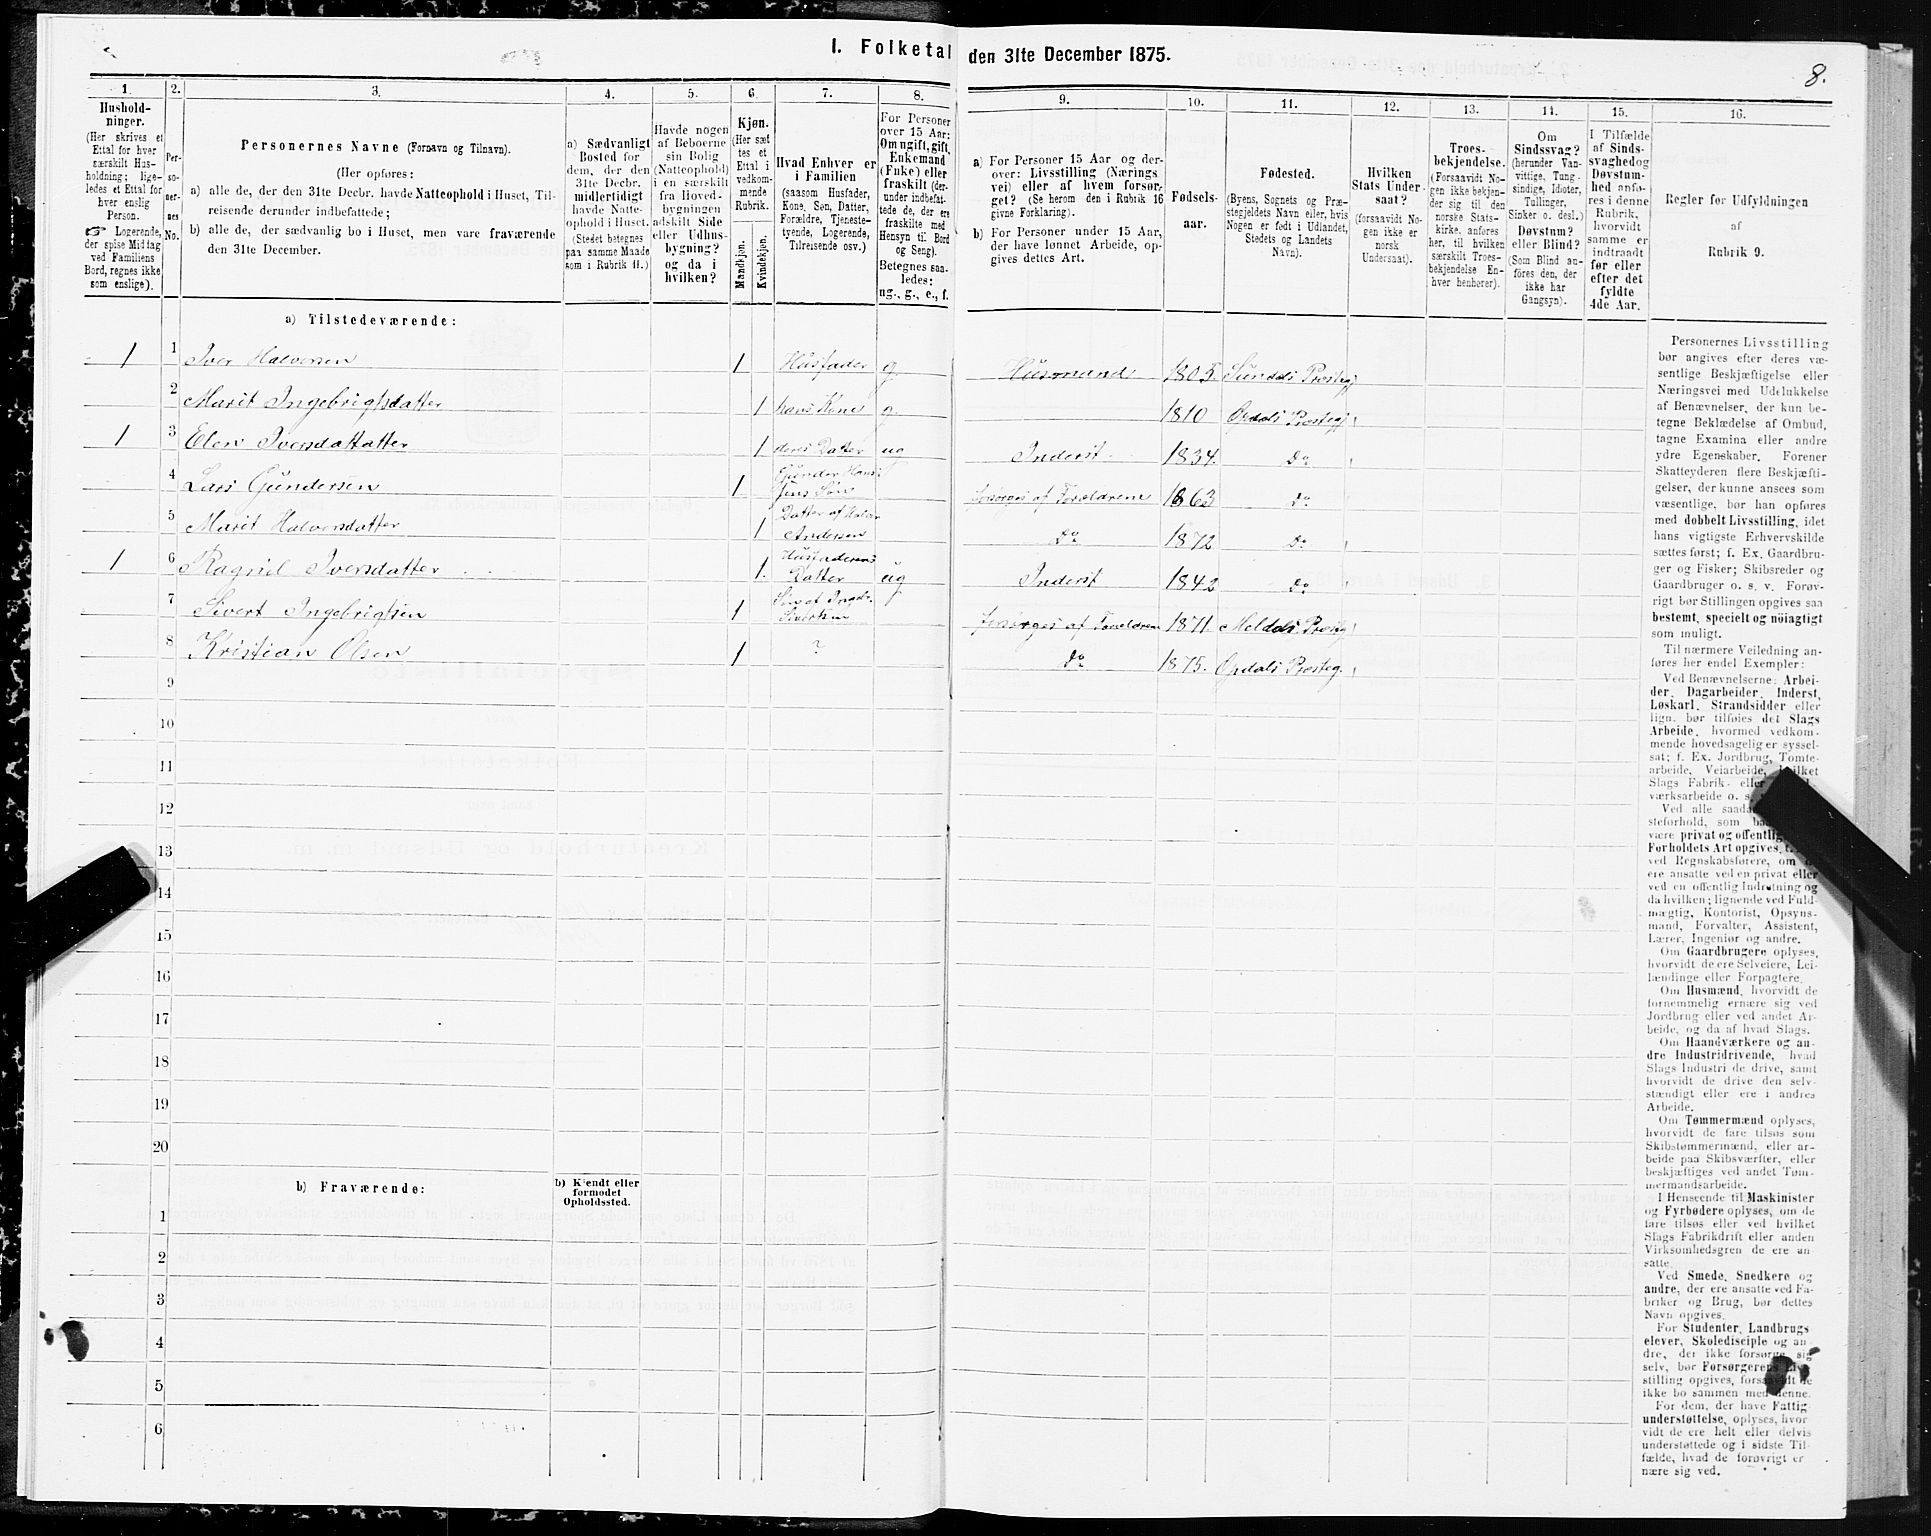 I. Folketal den 31te December 1875.
8.
1.
Hushold-
ninger.
(Her skrives et
Ettal for hver
særskilt Hus-
holdning; lige-
ledes et Ettal for
hver enslig
Person.
☞ Logerende,
der spise Middag
ved Familiens
Bord, regnes ikke
som enslige).
2.
Per-
so-
ner-
nes
No.
3.
Personernes Navne (Fornavn og Tilnavn).
(Her opføres:
a) alle de, der den 31te Decbr. havde Natteophold i Huset, Til-
reisende derunder indbefattede;
b) alle de, der sædvanlig bo i Huset, men vare fraværende
den 31te December.
4.
a) Sædvanligt
Bosted for
dem, der den
31te Decbr.
midlertidigt
havde Natte-
ophold i Huset.
(Stedet betegnes
paa samme Maade
som i Rubrik 11.)
5.
Havde nogen
af Beboerne
sin Bolig
(Natteophold)
i en særskilt
fra Hoved-
bygningen
adskilt Side
eller Udhus-
bygning?
og da i
hvilken?
6.
Kjøn.
(Her sæt
tes et
Ettal i
vedkom-
mende
Rubrik.
Mandkjøn.
Kvindekjøn.
7.
Hvad Enhver er
i Familien
(saasom Husfader,
Kone, Søn, Datter,
Forældre, Tjeneste-
tyende, Logerende,
Tilreisende osv.)
8.
For Personer
over 15 Aar:
Om ugift, gift,
Enkemand
(Enke) eller
fraskilt (der-
under indbefat-
tede de, der ere
fraskilte med
Hensyn til Bord
og Seng).
Betegnes saa-
ledes:
ug., g., e., f.
9.
a) For Personer 15 Aar og der-
over: Livsstilling (Nærings
vei) eller af hvem forsør-
get? (Se herom den i Rubrik 16
givne Forklaring).
b) For Personer under 15 Aar,
der have lønnet Arbeide, op-
gives dettes Art.
10.
Fødsels-
aar.
11.
Fødested.
(Byens, Sognets og Præ-
stegjeldets Navn eller, hvis
Nogen er født i Udlandet,
Stedets og Landets
Navn).
12.
Hvilken
Stats Under-
saat?
(forsaavidt No-
gen ikke er
norsk
Undersaat).
13.
Troes-
bekjendelse.
(Forsaavidt No-
gen ikke bekjen-
der sig til den
norske Stats-
kirke, anføres
her, til hvilken
særskilt Troes-
bekjendelse En-
hver henhører).
14.
Om
Sindssvag?
(herunder Van-
vittige, Tung-
sindige, Idioter,
Tullinger,
Sinker o. desl.)
Døvstum?
eller Blind?
(Som Blind an-
føres den, der
ikke har
Gangsyn).
15.
I Tilfælde
af Sinds-
svaghed og
Døvstum-
hed anfø-
res i denne
Rubrik,
hvorvidt
samme er
indtraadt
før eller
efter det
fyldte
4de Aar.
16.
Regler for Udfyldningen
af
Rubrik 9.
a) Tilstedeværende:
1 1 Iver Halvorsen 1 Husfader g. Husmand 1805. Sundals Prestegj
2 Marit Ingebrigtsdatter 1 hans Kone g. 1810 Opdals Prestegj
1 3 Elen Iversdattatter 1 deres Datter ug Inderst 1834. Do
4 Lars Gundersen 1 Gunder Hans-
Jens Søn forsørges af Forældrene 1863 Do
5 Marit Halvorsdatter 1 Datter af Halvor
Andersen Do 1872 Do
1 6 Ragnil Iversdatter 1. Husfaderens
Datter ug Inderst 1842 Do
7 Sivert Ingebrigtsen 1 Søn af Ingebr.
Sivertsen forsørges af Forældrene 1871. Meldals Presteg
8 Kristian Olsen 1 ? Do 1875. Opdals Presteg.
9
10
11
12
13
14
15
16
17
18
19
20
b) Fraværende:
b) Kjendt eller
formodet
Opholdssted.
1
2
3
4
5
6
Personernes Livsstilling
bør angives efter deres væ-
sentlige Beskjæftigelse eller
Næringsvei med Udelukkelse
af Benævnelser, der kun be-
tegne Beklædelse af Ombud,
tagne Examina eller andre
ydre Egenskaber. Forener
Skatteyderen flere Beskjæfti-
gelser, der kunne ansees som
væsentlige, bør han opføres
med dobbelt Livsstilling, idet
hans vigtigste Erhvervskilde
sættes først; f. Ex. Gaardbru-
ger og Fisker; Skibsreder og
Gaardbruger o. s. v. Forøv-
rigt bør Stillingen opgives saa
bestemt, specielt og nöiagtigt
som muligt.
Til nærmere Veiledning an-
føres her endel Exempler:
Ved Benævnelserne: Arbei-
der, Dagarbeider, Inderst,
Løskarl, Strandsidder eller
lign. bør tilføies det Slags
Arbeide, hvormed vedkom-
mende hovedsagelig er syssel-
sat; f. Ex. Jordbrug, Tomte-
arbeide, Veiarbeide, hvilket
Slags Fabrik- eller
værksarbeide o. s.
Ved alle saada
steforhold, som
være privat og offentlig
Forholdets Art opgives,
ved Regnskabsførere, om
ere ansatte ved en privat eller
ved en offentlig Indretning og
da hvilken; lignende ved Fuld-
mægtig, Kontorist, Opsyns-
mand, Forvalter, Assistent,
Lærer, Ingeniør og andre.
Om Gaardbrugere oplyses,
hvorvidt de ere Selveiere, Lei-
lændinge eller Forpagtere.
Om Husmænd, hvorvidt de
fornemmelig ernære sig ved
Jordbrug eller ved andet Ar-
beide, og da af hvad Slags.
Om Haandværkere og an-
dre Industridrivende, hvad
Slags Industri de drive, samt
hvorvidt de drive den selv-
stændigt eller ere i andres
Arbeide.
Om Tømmermænd oplyses,
hvorvidt de fare tilsøs som
Skibstømmermænd, eller ar-
beide paa Skibsværfter, eller
beskjæftiges ved andet Tøm-
mermandsarbeide.
I Henseende til Maskinister
og Fyrbødere oplyses, om de
fare tilsøs eller ved hvilket
Slags Fabrikdrift eller anden
Virksomhedsgren de ere an-
satte.
Ved Smede, Snedkere og
andre, der ere ansatte ved Fa-
briker og Brug, bør dettes
Navn opgives.
For Studenter, Landbrugs
elever, Skoledisciple og an-
dre, der ikke forsørge sig
selv, bør Forsørgerens Liv-
stilling opgives, forsaavidt de
ikke bo sammen med denne.
For dem, der have Fattig
understøttelse, oplyses, hvor
vidt de ere helt eller delvis
understøttede og i sidste Til-
fælde, hvad de forøvrigt er
nære sig ved.